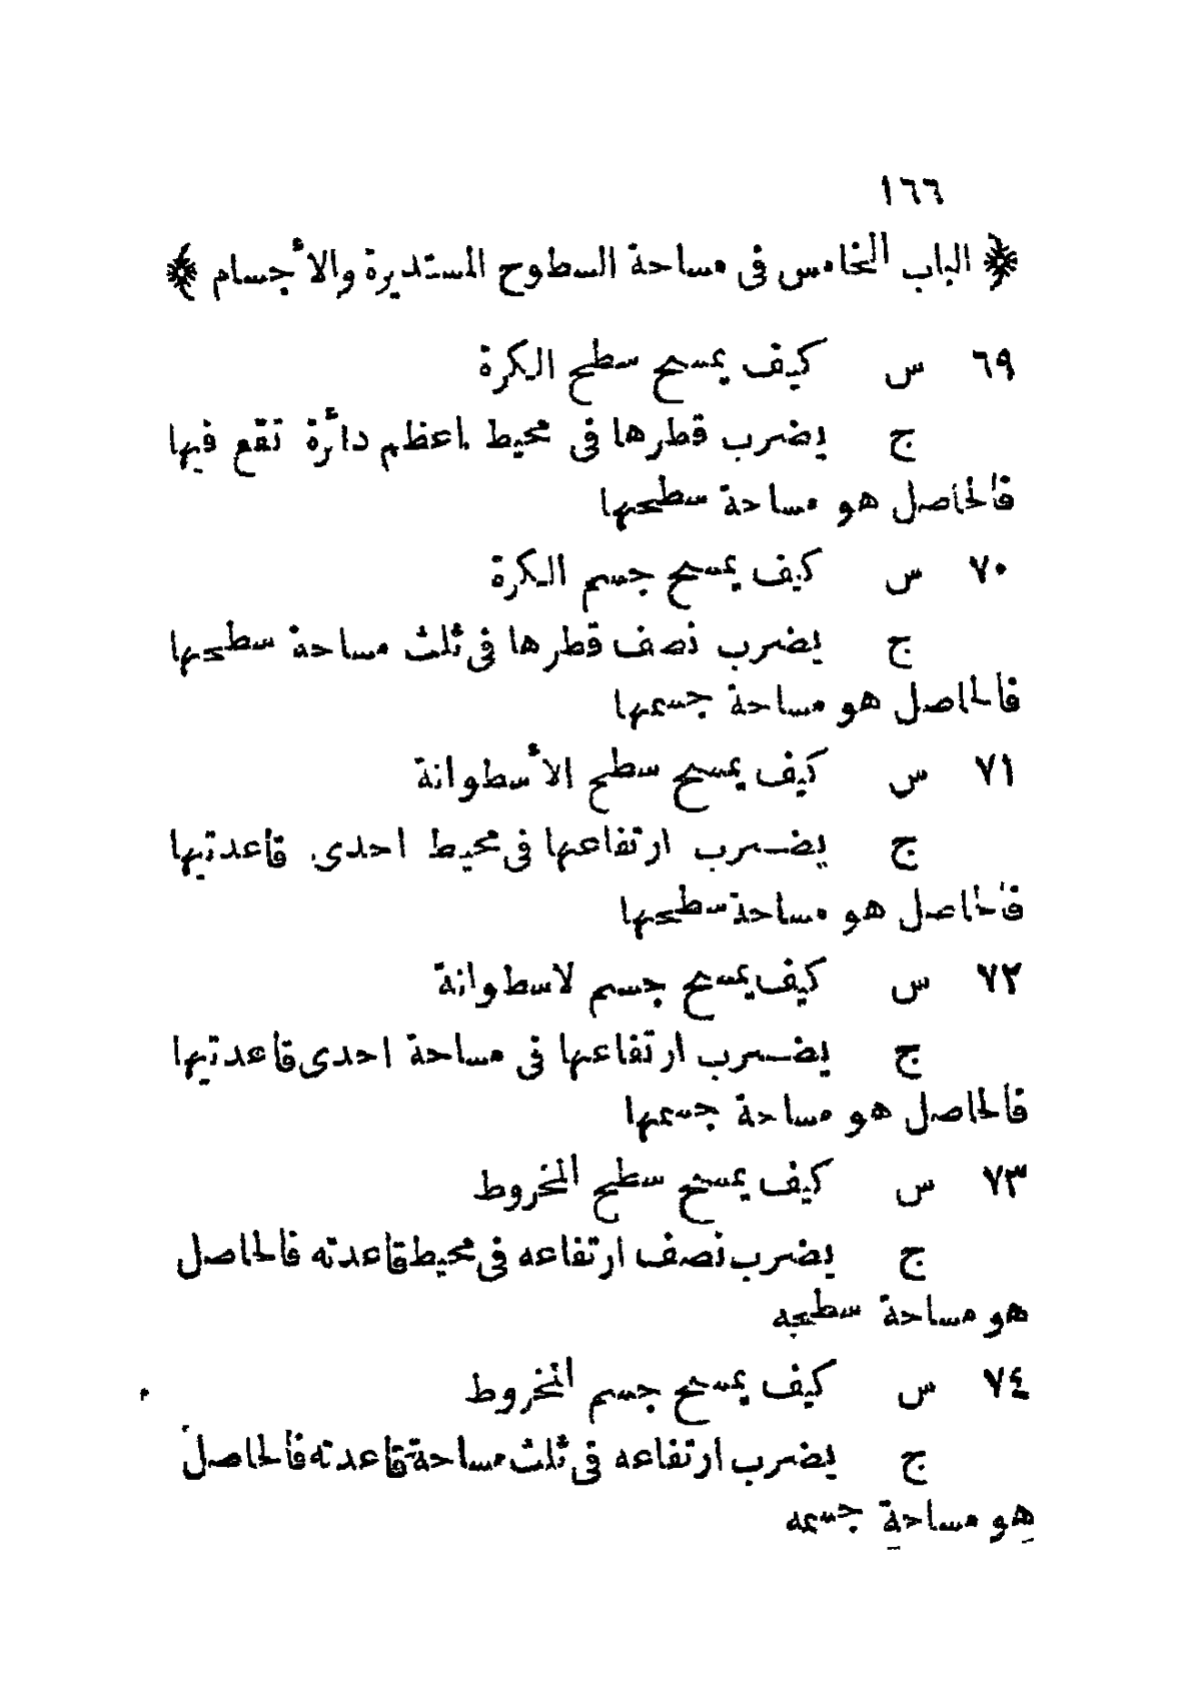 ١٦٦
﴿ الباب الخامس فى مساحة السطوح المستديرة والأجسام ﴾
٦٩ س كيف يمسح سطح الكرة
ج يضرب قطرها فى محيط اعظم دائرة تقع فيها
فالحاصل هو مساحة سطحها
٧٠ س كيف يمسح جسم الكرة
ج يضرب نصف قطرها فى ثلث مساحة سطحها
فالحاصل هو مساحة جسمها
٧١ س كيف يمسح سطح الأسطوانة
ج يضرب ارتفاعها فى محيط احدى قاعدتيها
فالحاصل هو مساحة سطحها
٧٢ س كيف يمسح جسم لاسطوانة
ج يضرب ارتفاعها فى مساحة احدى قاعدتيها
فالحاصل هو مساحة جسمها
٧٣ س كيف يمسح سطح المخروط
ج يضرب نصف ارتفاعه فى محيط قاعدته فالحاصل
هو مساحة سطحه
٧٤ س كيف يمسح جسم المخروط
ج يضرب ارتفاعه فى ثلث مساحة قاعدته فالحاصل
هو مساحة جسمه